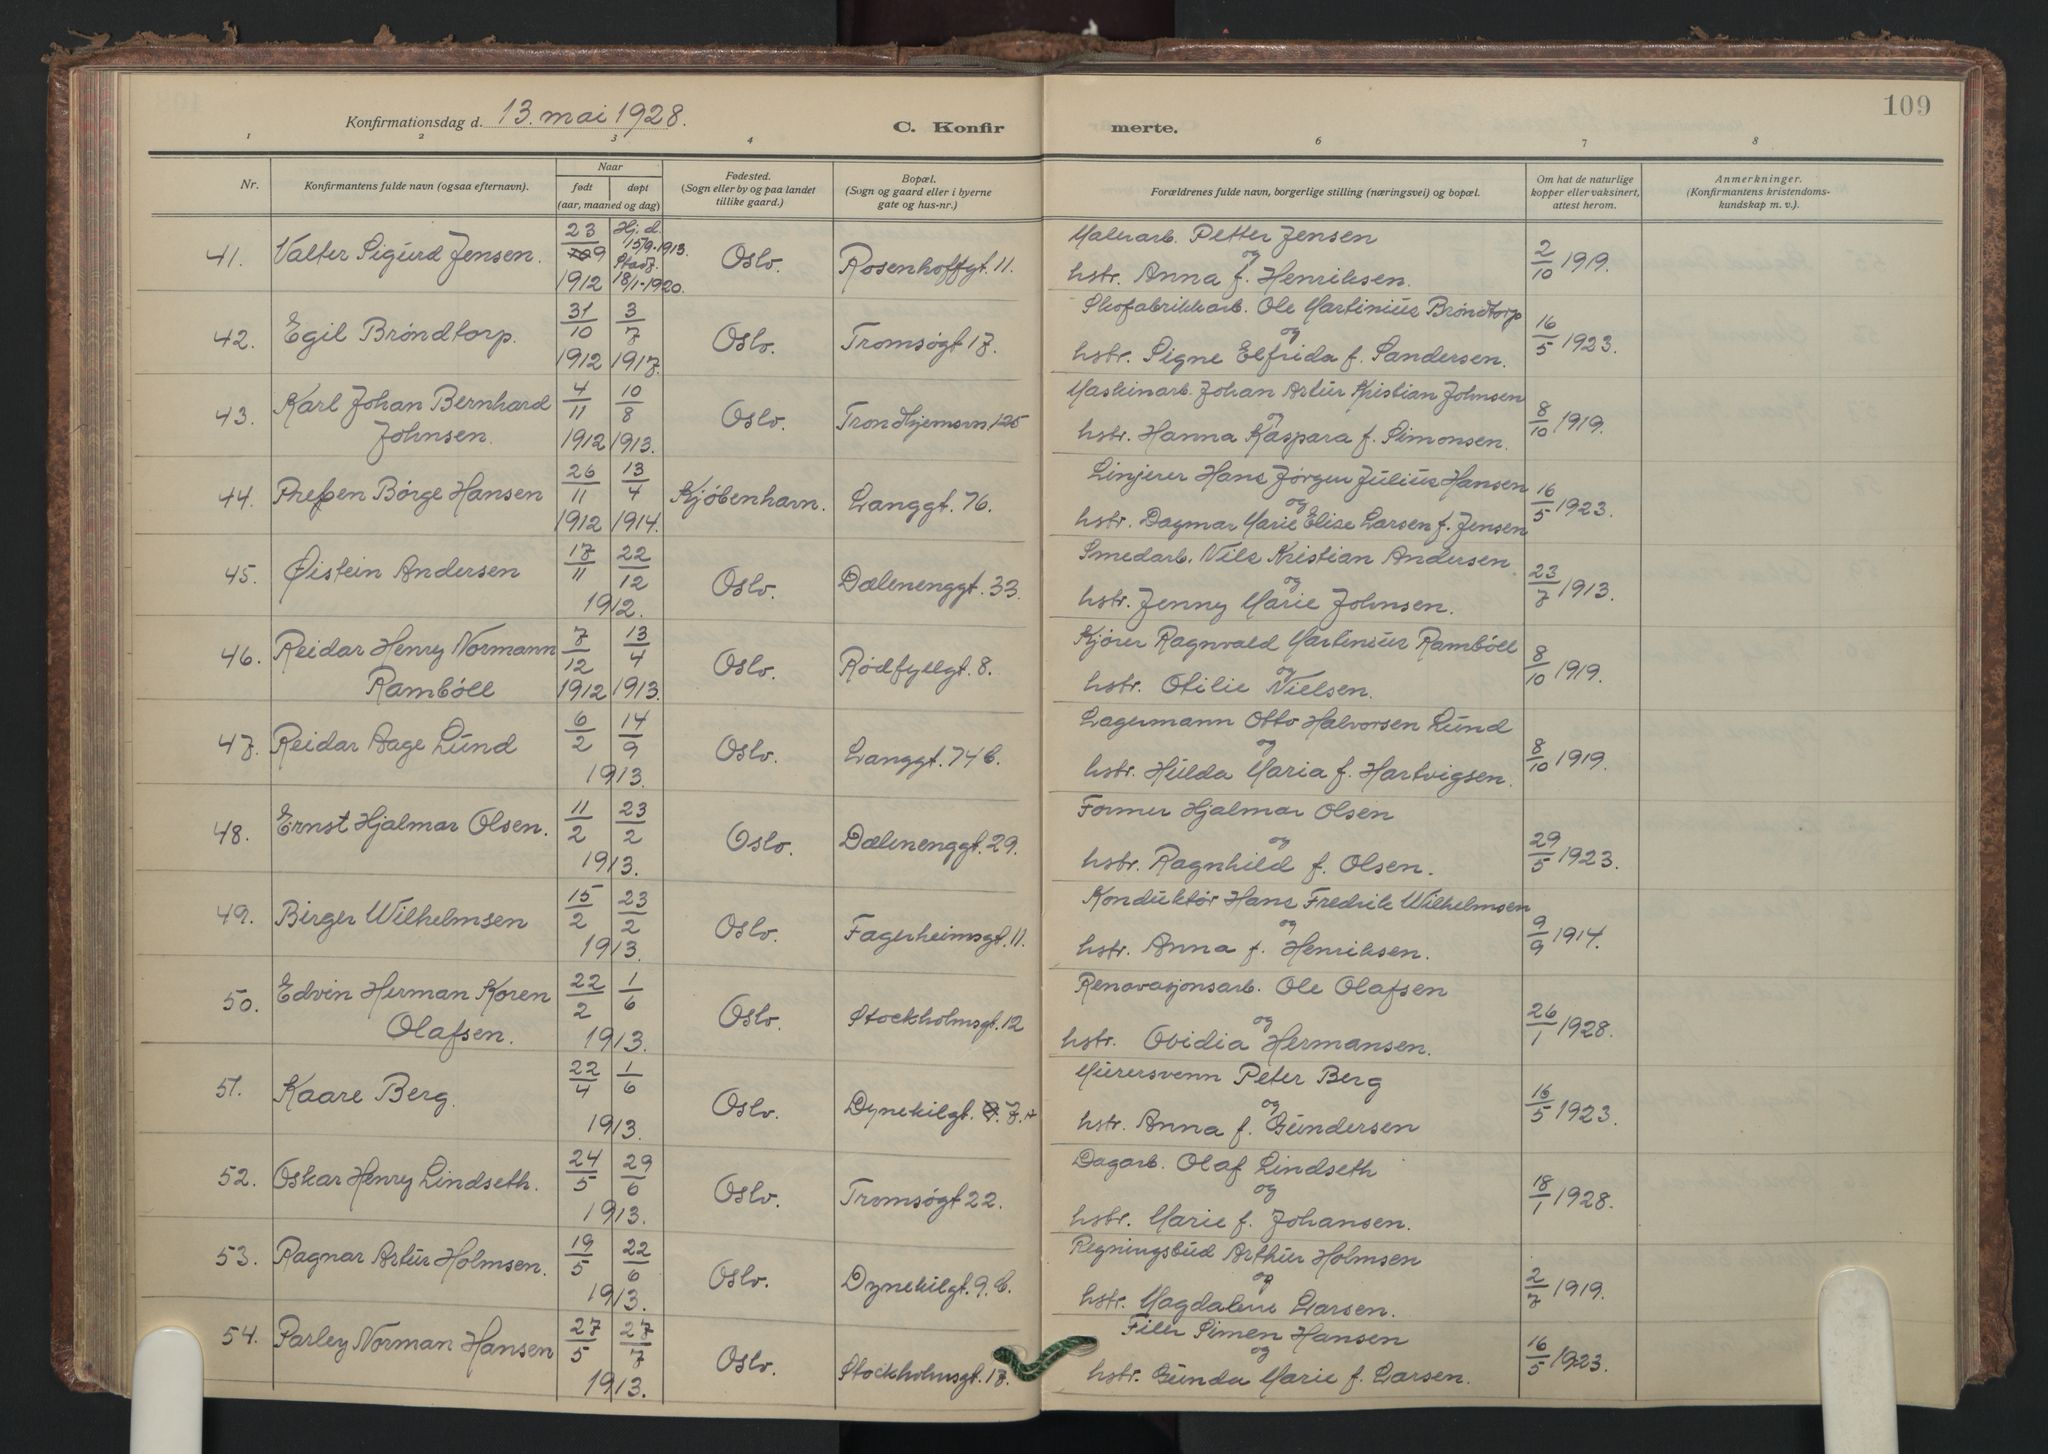 109
Konfirmationsdag d. 13. mai 1928.
C. Konfir merte.
1 2 3 4 6 7 8
Nr.
Konfirmantens fulde navn (ogsaa efternavn).
Naar
født døpt
(aar, maaned og dag)
Fødested.
(Sogn eller by og paa landet
tillike gaard.)
Bopæl.
(Sogn og gaard eller i byerne
gate og hus-nr.)
Forældrenes fulde navn, borgerlige stilling (næringsvei) og bopæl.
Om hat de naturlige
kopper eller vaksinert,
attest herom.
Anmerkninger.
(Konfirmantens kristendoms-
kundskap m. v.).
41. Valter Sigurd Jensen. 23/9 1912 Hj. d. 15/9-1913. Stadf. 18/1-1920. Oslo. Rosenhoffgt. 11. Malerarb. Petter Jensen
og
hstr. Anna f. Henriksen. 2/10 1919.
42. Egil Bröndtorp. 31/10 1912 3/7 1917. Oslo. Tromsøgt 17. Skofabrikkarb. Ole Martinius Bröndtorp
og
hstr. Signe Elfrida f. Sandersen. 16/5 1923.
43. Karl Johan Bernhard
Johnsen. 4/11 1912 10/8 1913. Oslo. Trondhjemsvn. 125 Maskinarb. Johan Artur Kristian Johnsen
og
hstr. Hanna Kaspara f. Simonsen. 8/10 1919.
44. Preben Børge Hansen 26/11 1912 13/4 1914. Kjøbenhavn. Langgt. 76. Linjerer Hans Jørgen Julius Hansen
og
hstr. Dagmar Marie Elise Larsen f. Jensen 16/5 1923.
45. Øistein Andersen 17/11 22/12 1912. Oslo. Dælenenggt. 33. Smedarb. Nils Kristian Andersen
og
hstr. Jenny Marie Johnsen. 23/7 1913.
46. Reidar Henry Normann
Ramböll 7/12 1912 13/4 1913. Oslo. Rødfyllgt. 8. Kjører Ragnvald Martinius Ramböll
og
hstr. Otilie Nielsen. 8/10 1919.
47. Reidar Aage Lund 6/2 14/9 1913. Oslo. Langgt. 74 b. Lagermann Otto Halvorsen Lund
og
hstr. Hulda Maria f. Hartvigsen. 8/10 1919.
48. Ernst Hjalmar Olsen. 11/2 23/2 1913. Oslo. Dælenenggt. 29. Former Hjalmar Olsen
og
hstr. Ragnhild f. Olsen. 29/5 1923.
49. Birger Wilhelmsen 15/2 23/2 1913. Oslo. Fagerheimsgt. 11. Konduktør Hans Fredrik Wilhelmsen
og
hstr. Anna f. Henriksen. 9/9 1914.
50. Edvin Herman Koren
Olafsen. 22/2 1/6 1913. Oslo. Stockholmsgt. 12 Renovasjonsarb. Ole Olafsen
og
hstr. Ovidia Hermansen. 26/1 1928.
51. Kaare Berg. 22/4 1/6 1913. Oslo. Dynekilgt. 7. Murersvenn Peter Berg
og
hstr. Anna f. Gundersen 16/5 1923.
52. Oskar Henry Lindseth. 24/5 29/6 1913. Oslo. Tromsøgt 22. Dagarb. Olaf Lindseth
og
hstr. Marie f. Johansen. 18/1 1928.
53. Ragnar Artur Holmsen. 19/5 22/6 1913. Oslo. Dynekilgt. 9. b. Regningsbud Arthur Holmsen
og
hstr. Magdalene Larsen. 2/7 1919.
54. Parley Norman Hansen 27/5 27/7 1913. Oslo. Stockholmsgt. 17. Filer Simen Hansen
og
hstr. Gunda Marie f. Larsen. 16/5 1923.